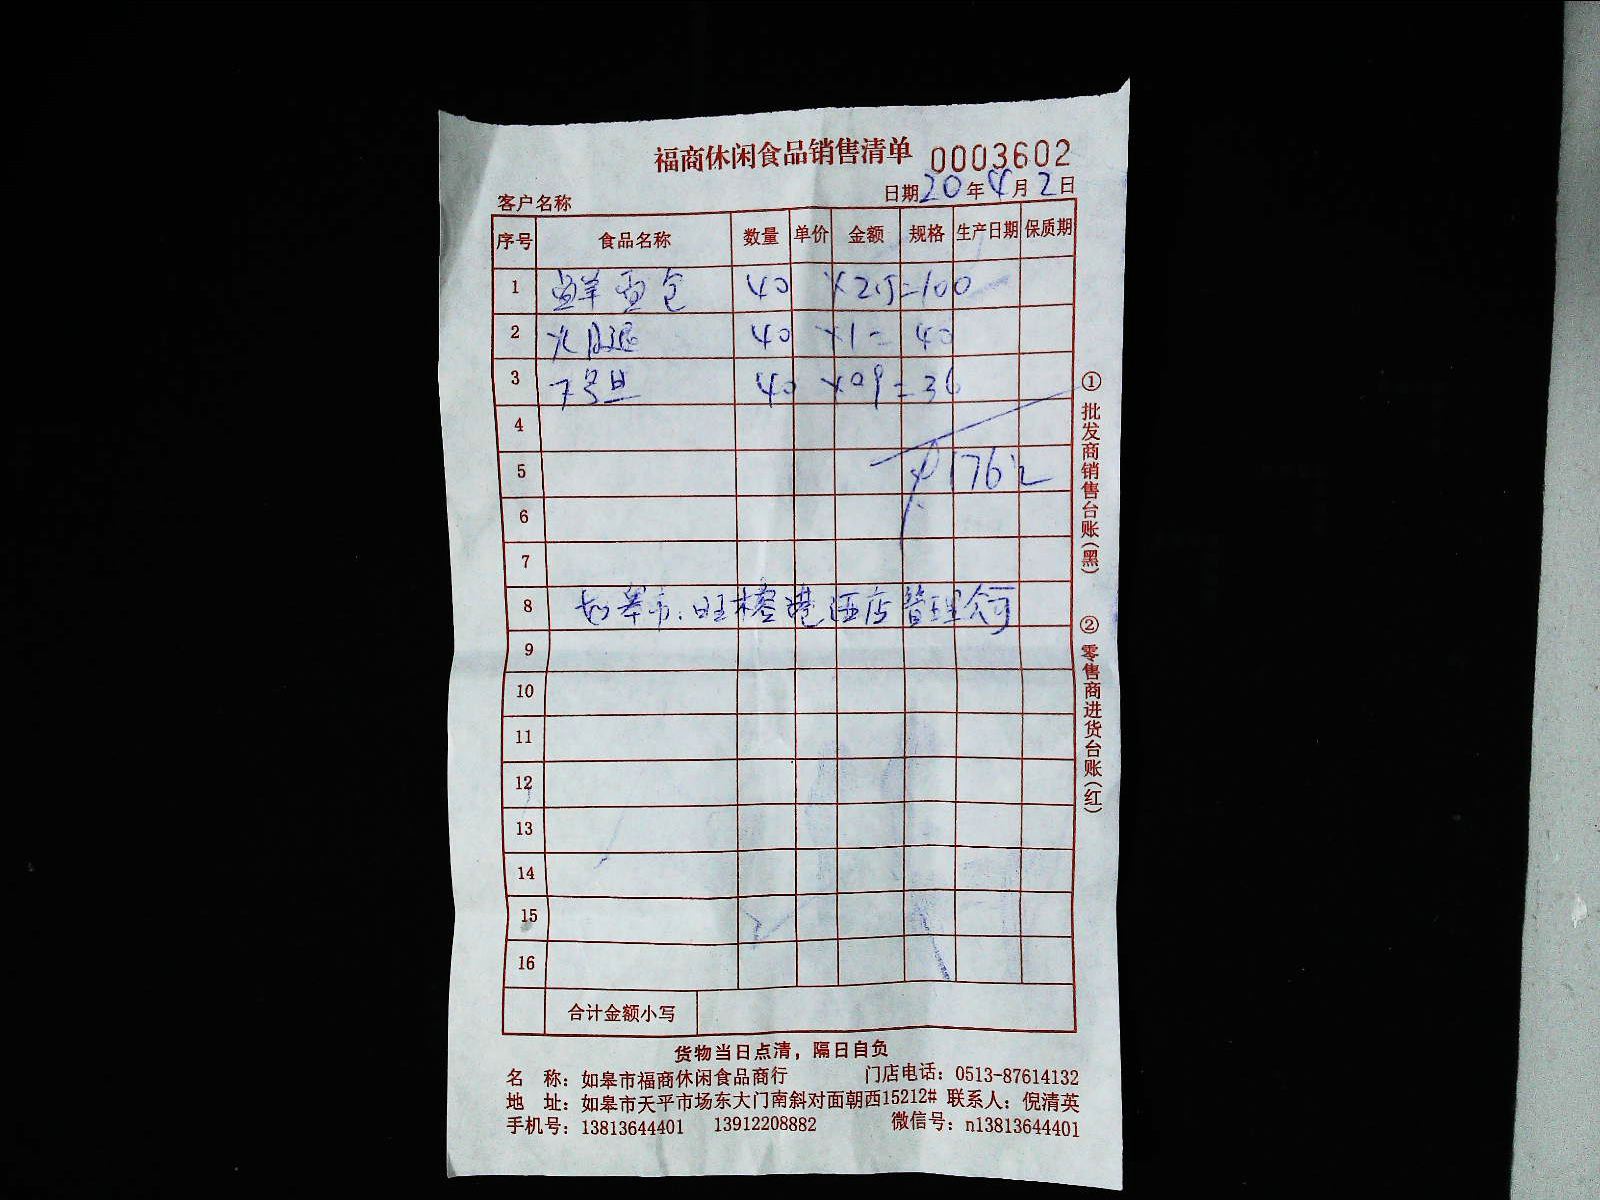 福商休闲食品销售清单 0003602
客户名称 日期20年4月2日
序号 食品名称 数量 单价 金额 规格 生产日期 保质期
1 鲜面包 40 ×2.5=100
2 火腿 40 ×1= 40
3 40 ×0.9=36
4
5 176元
6
7
8 如皋市 旺榕港酒店管理公司
9
10
11
12
13
14
15
16
合计金额小写
①批发商销售台账(黑)
②零售商进货台账(红)
货物当日点清，隔日自负
名 称：如皋市福商休闲食品商行 门店电话：0513-87614132
地 址：如皋市天平市场东大门南斜对面朝西15212# 联系人：倪清英
手机号：13813644401 13912208882 微信号：n13813644401